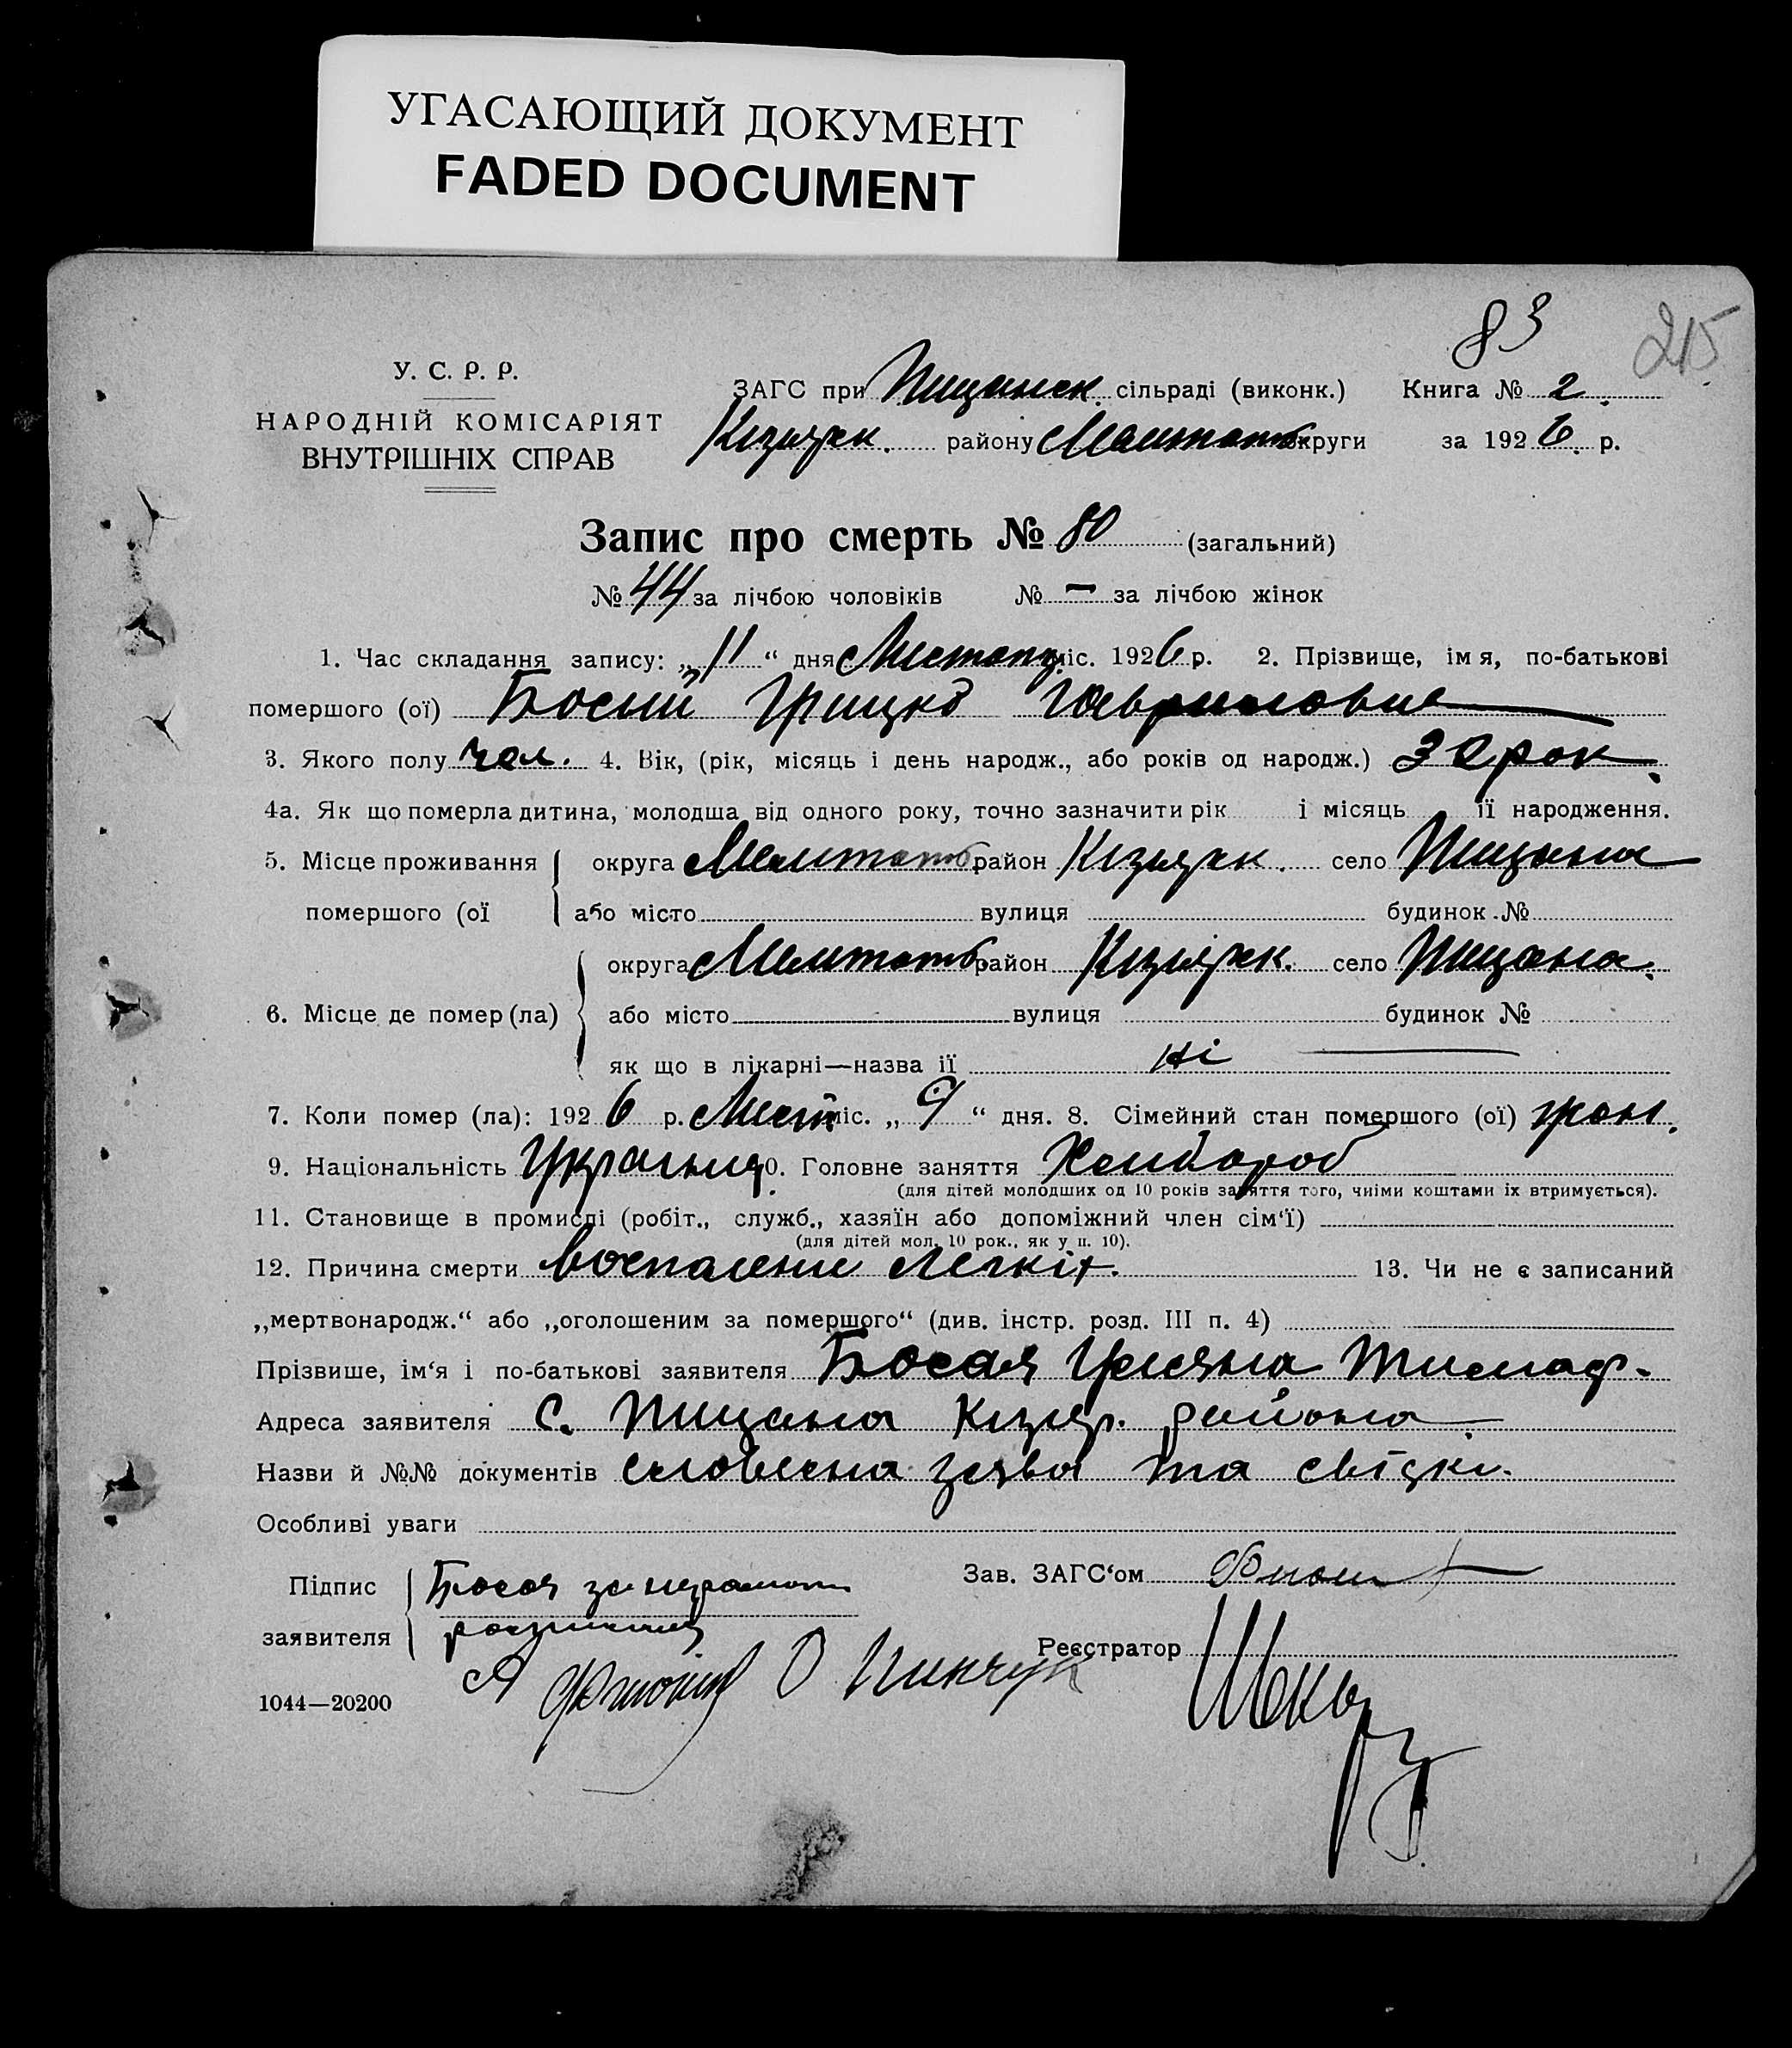 УГАСАЮЩИЙ ДОКУМЕНТ
FADED DOCUMENT
83 215
У. С. Р. Р.
НАРОДНІЙ КОМІСАРІЯТ
ВНУТРІШНІХ СПРАВ
ЗАГС при Пищанск. сільраді (виконк.) Книга № 2.
Кізіярск. району Мелитоп. округи за 1926 р.
Запис про смерть № 80 (загальний)
№ 44 за лічбою чоловіків № – за лічбою жінок
1. Час складання запису: „11“ дня Листопад. міс. 1926 р. 2. Прізвище, імя, по-батькові
помершого (ої) Босий Грицко Гаврилович
3. Якого полу чол. 4. Вік, (рік, місяць і день народж., або років од народж.) 32 рок.
4а. Як що померла дитина, молодша від одного року, точно зазначити рік і місяць її народження.
5. Місце проживання округа Мелитоп. район Кізіярск. село Пищана
помершого (ої або місто вулиця будинок №
округа Мелитоп. район Кізіярск. село Пищана.
6. Місце де помер (ла) або місто вулиця будинок №
як що в лікарні—назва її ні
7. Коли помер (ла): 1926 р. Лист. міс. „9“ дня. 8. Сімейний стан помершого (ої)
9. Національність 10. Головне заняття Хлибороб
(для дітей молодших од 10 років заняття того, чиїми коштами їх втримується).
11. Становище в промислі (робіт., служб., хазяїн або допоміжний член сім‘ї)
(для дітей мол. 10 рок., як у п. 10).
12. Причина смерти воспаление легкіх. 13. Чи не є записаний
„мертвонародж.“ або „оголошеним за помершого“ (див. інстр. розд. III п. 4)
Прізвише, ім‘я і по-батькові заявителя Босая Улияна Тимоф.
Адреса заявителя С. Пищана Кізіяр. района
Назви й №№ документів словесна заява та свідки.
Особливі уваги
Підпис Босая за неграмотн Зав. ЗАГС‘ом
заявителя
Реєстратор
О Пинчук
1044—20200